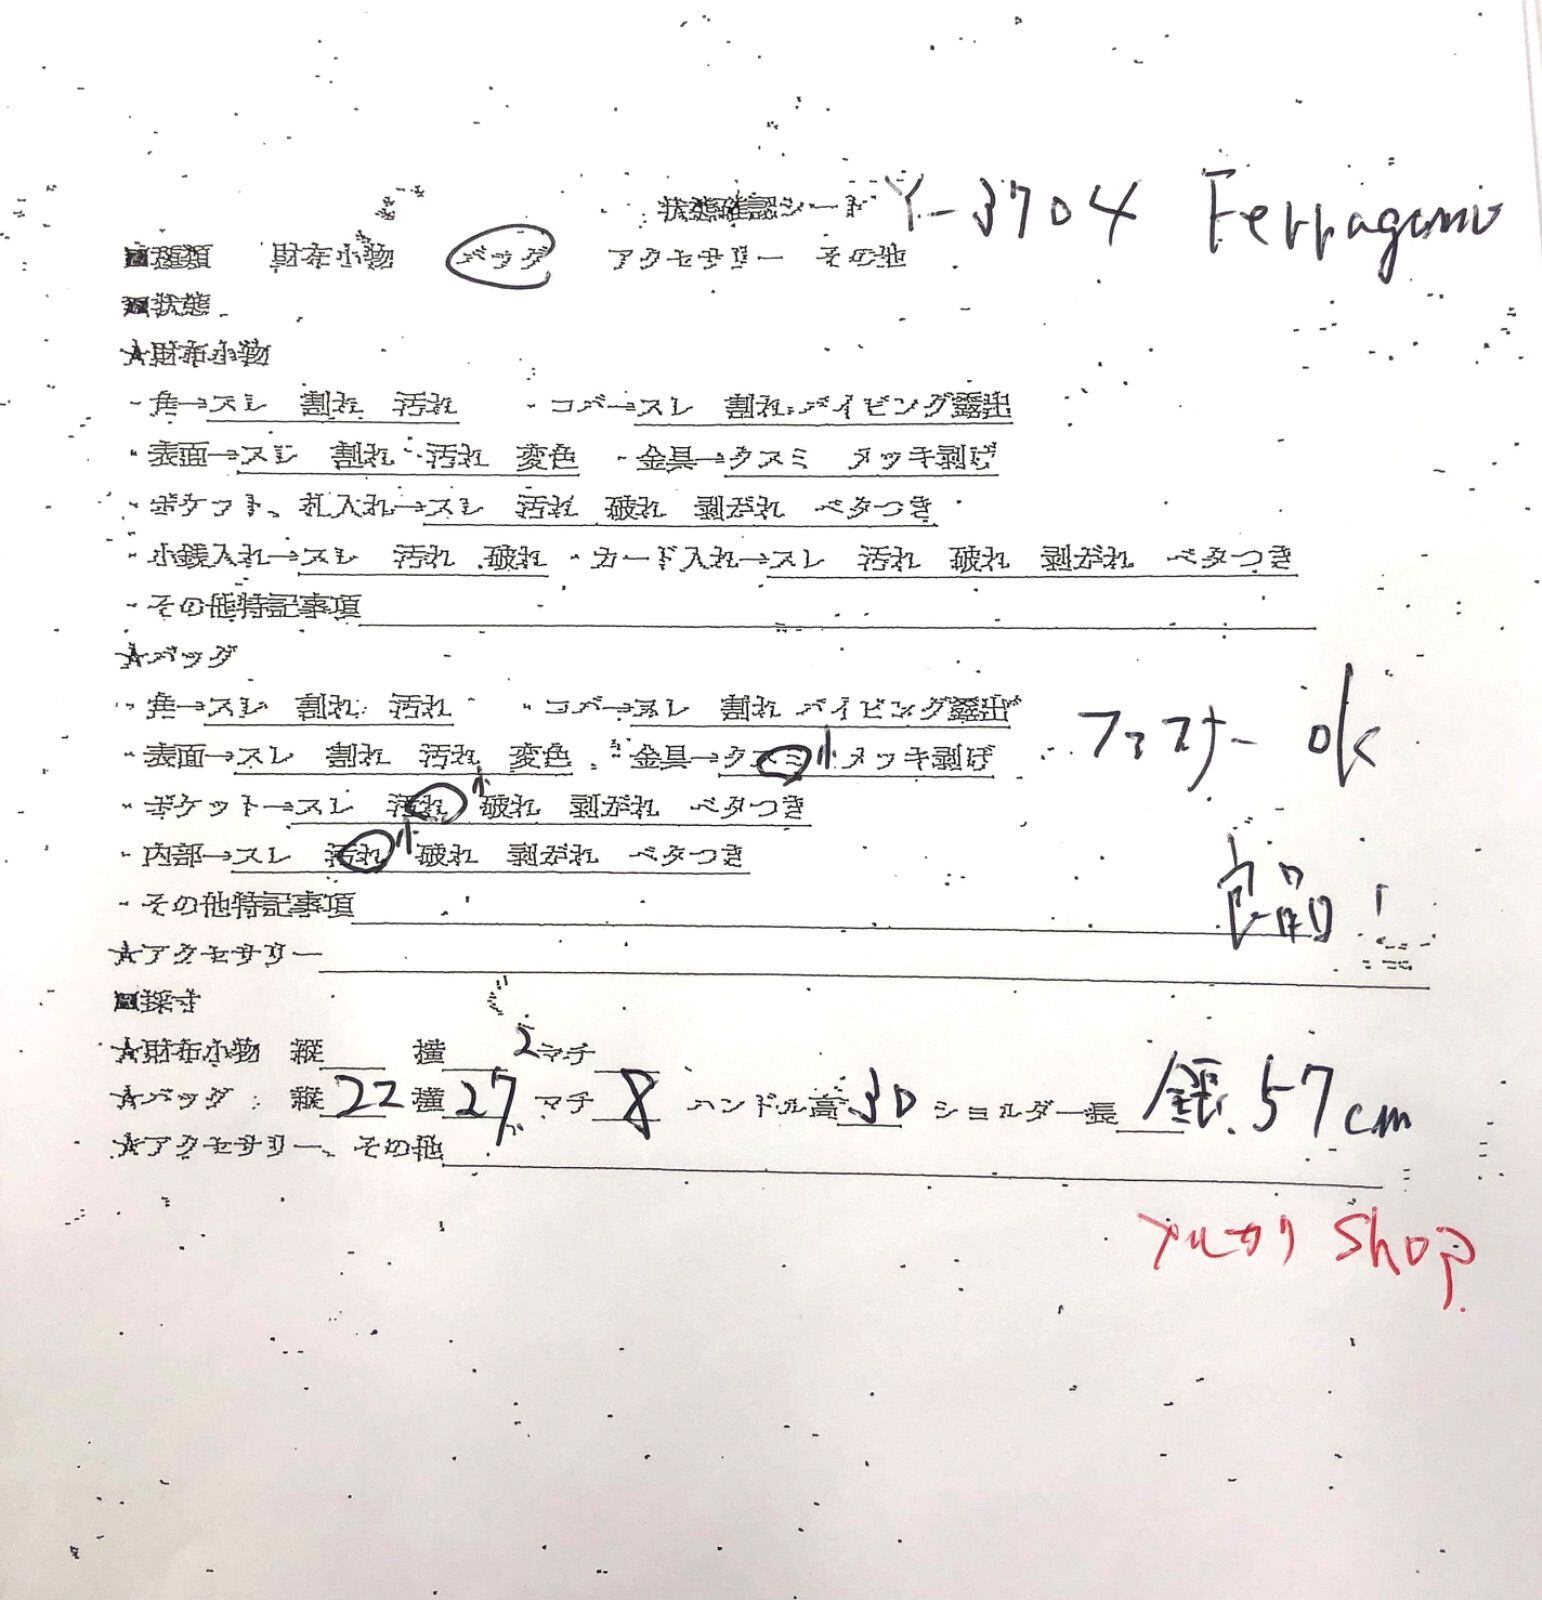 状態確認シート Y-3704 Ferragamo
■種類 財布小物 バッグ アクセサリー その他
■状態
★財布小物
・角→スレ 割れ 汚れ ・コバ→スレ 割れ パイピング露出
・表面→スレ 割れ 汚れ 変色 ・金具→クスミ メッキ剥げ
・ポケット、札入れ→スレ 汚れ 破れ 剥がれ ベタつき
・小銭入れ→スレ 汚れ 破れ ・カード入れ→スレ 汚れ 破れ 剥がれ ベタつき
・その他特記事項
★バッグ
・角→スレ 割れ 汚れ ・コバ→スレ 割れ パイピング露出
・表面→スレ 割れ 汚れ 変色 ・金具→クスミ 小 メッキ剥げ ファスナー ok
・ポケット→スレ 汚れ 小 破れ 剥がれ ベタつき
・内部→スレ 汚れ 小 破れ 剥がれ ベタつき
良品!
・その他特記事項
★アクセサリー
■採寸
★財布小物 縦 横 マチ
★バッグ 縦 22 横 27 マチ 8 ハンドル高 30 ショルダー長 全長 57cm
★アクセサリー、その他
メルカリ Shop